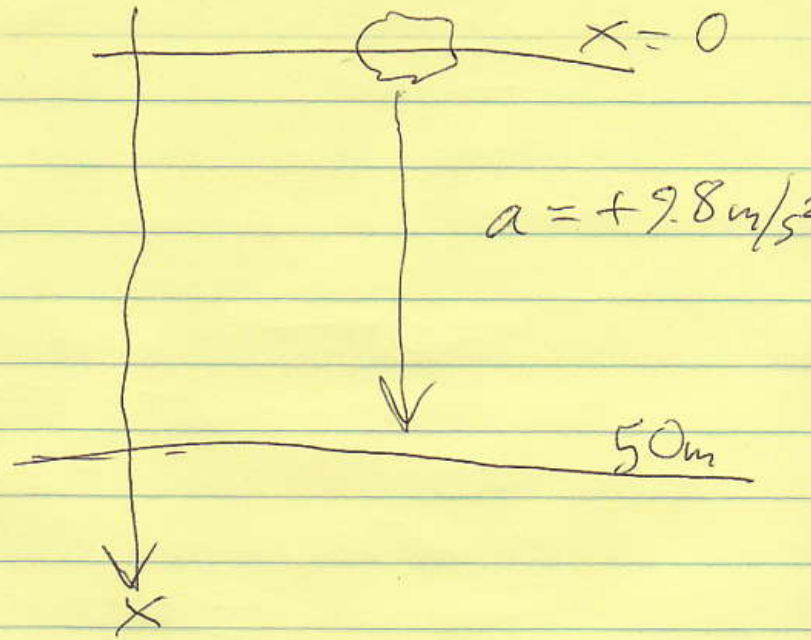 x = 0
a = +9.8 m/s²
50m
x